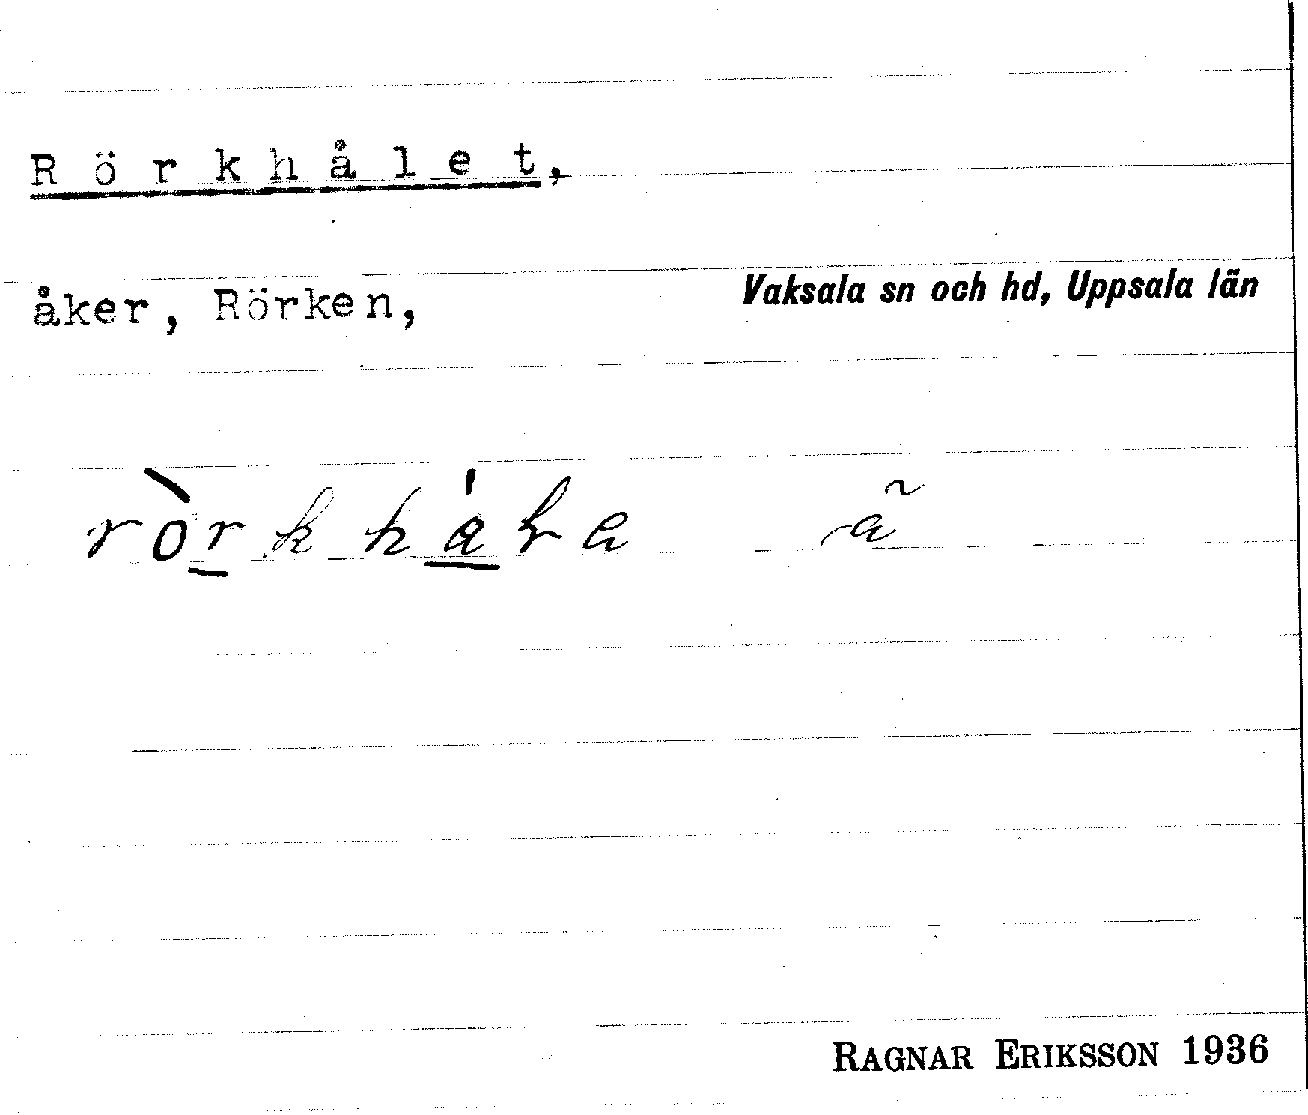 Rörkhålet,
åker, Rörken,
Vaksala sn och hd, Uppsala län
RAGNAR ERIKSSON 1936